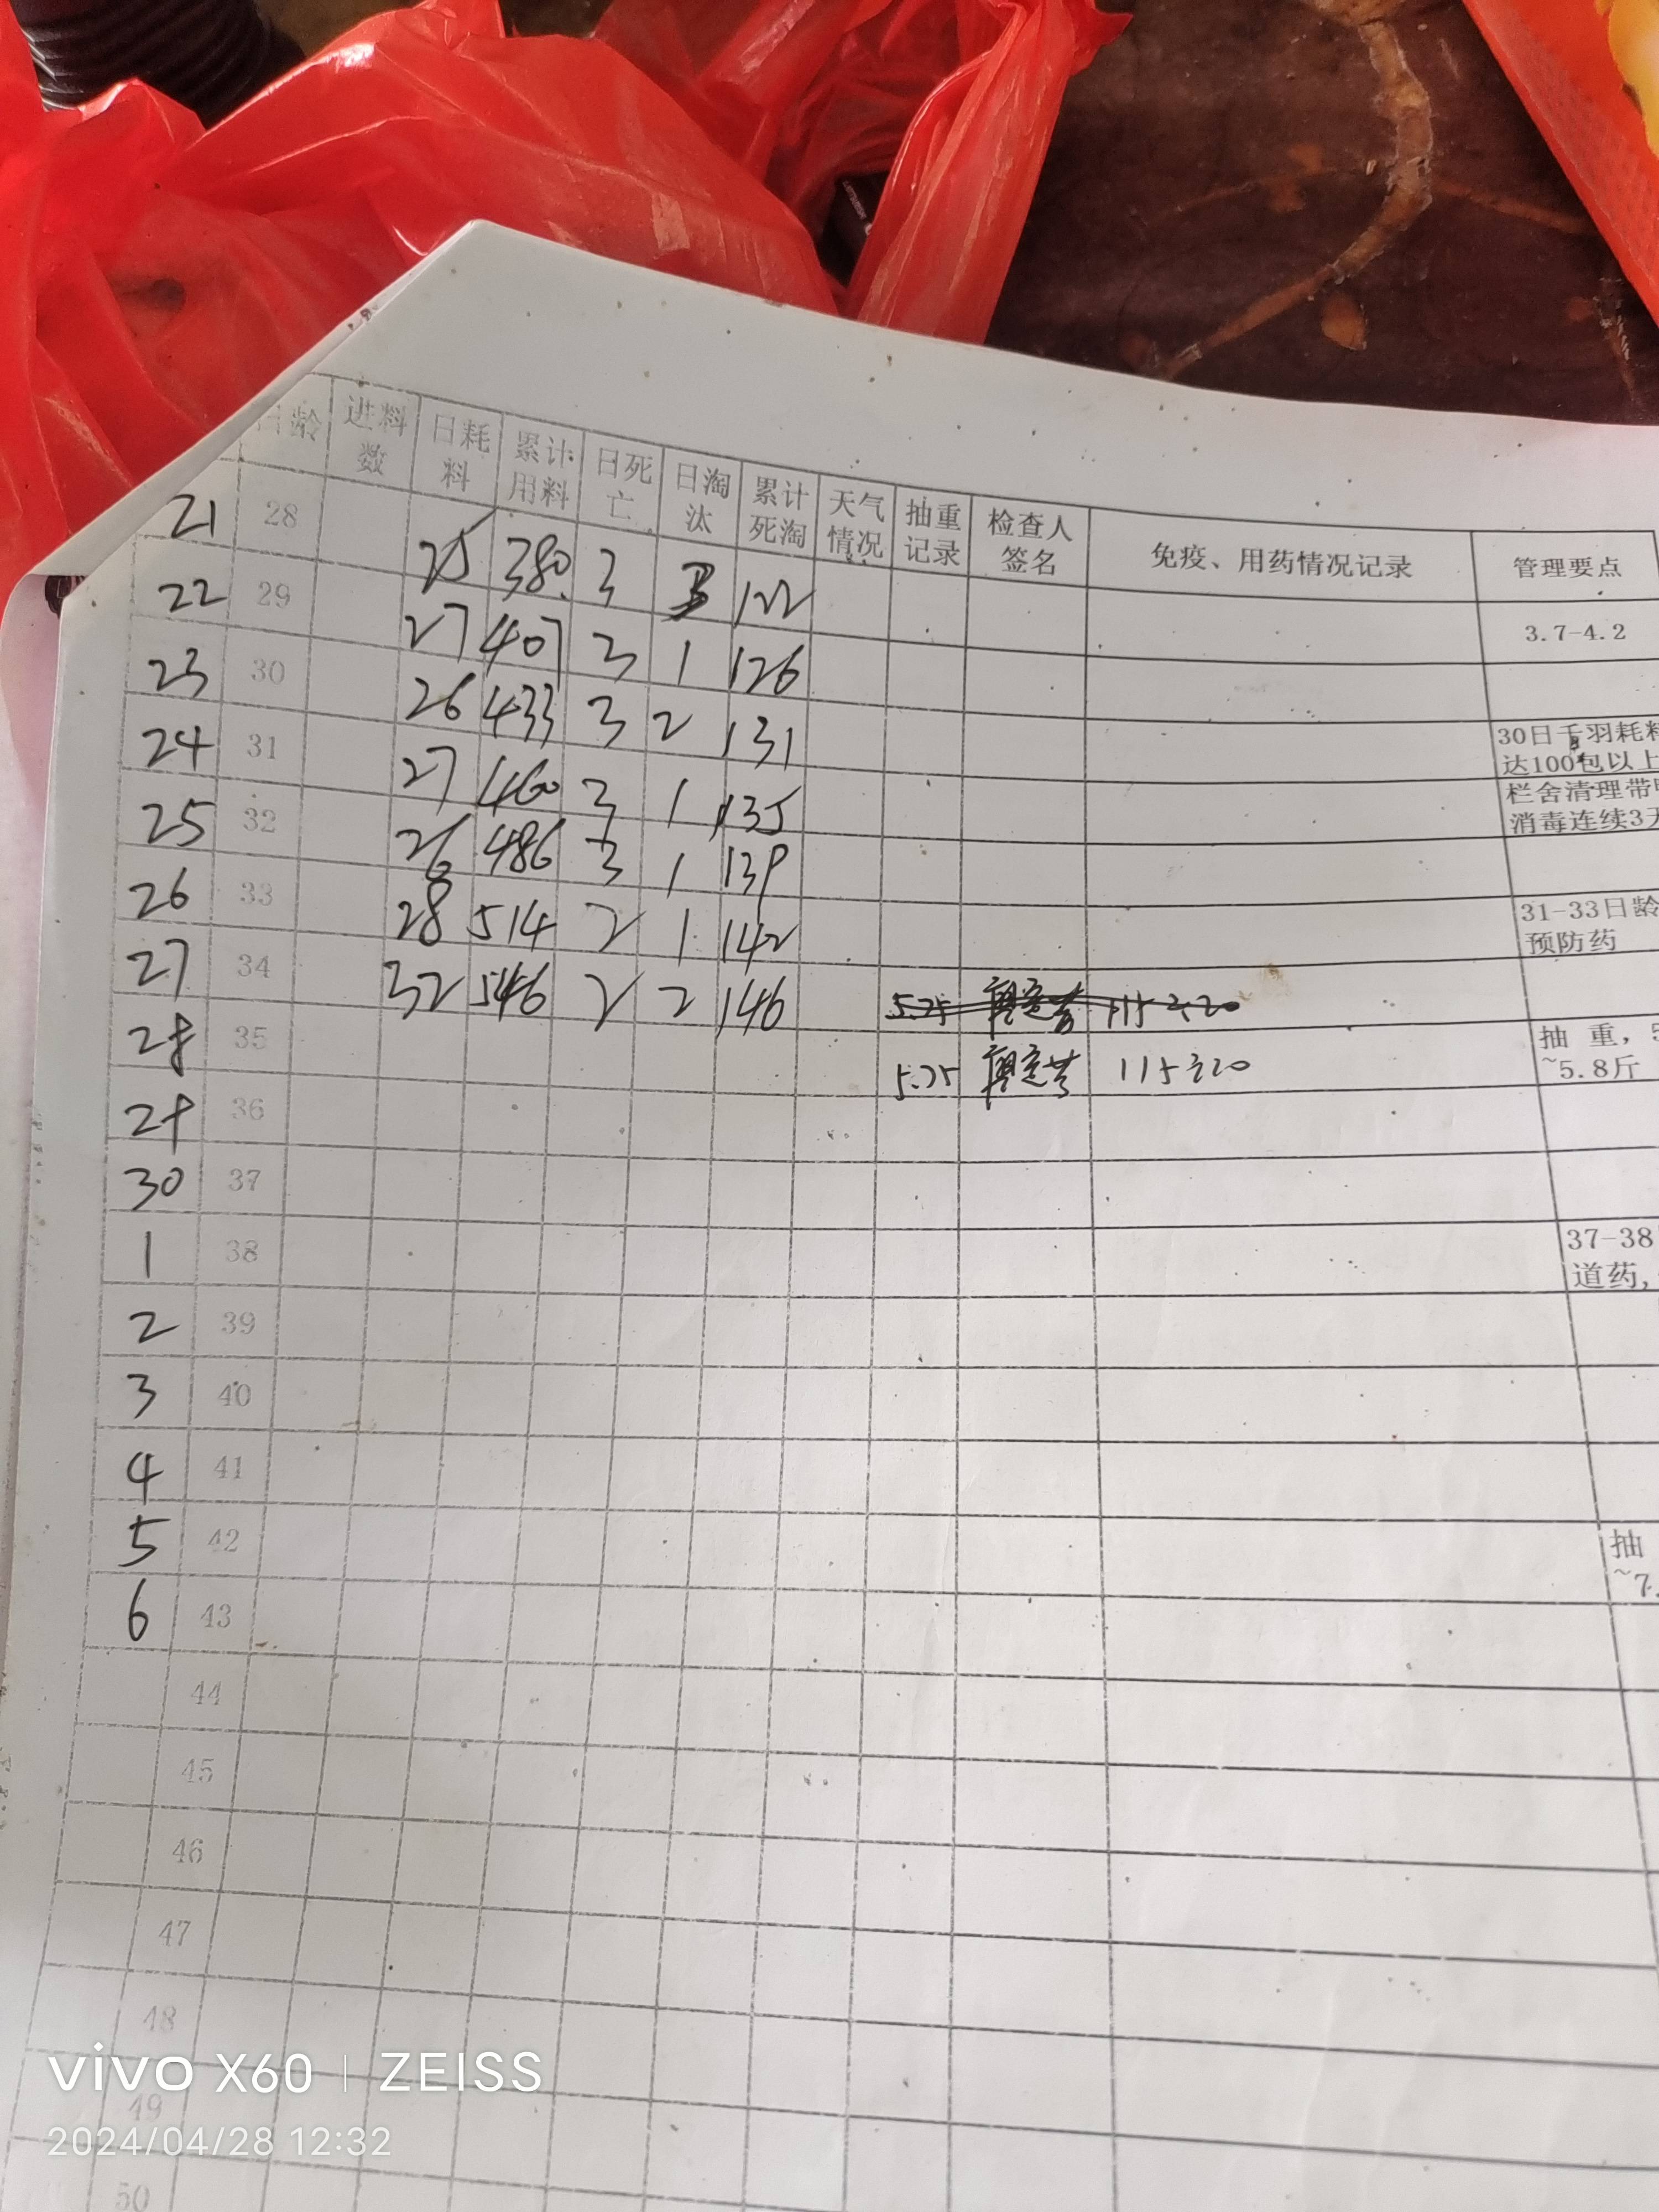 日龄 进料数 日耗料 累计用料 日死亡 日淘汰 累计死淘 天气情况 抽重记录 检查人签名 免疫、用药情况记录 管理要点
21 28 25 380 3 3 122 3.7-4.2
22 29 27 407 3 1 126
23 30 26 433 3 2 131 30日千羽耗料
达100包以上
24 31 27 460 3 1 135 栏舍清理带
消毒连续3天
25 32 26 486 3 1 139
26 33 28 514 2 1 142 31-33日龄
预防药
27 34 32 546 2 2 146 5.25
28 35 5.25 抽 重,5
~5.8斤
29 36
30 37
1 38 37-38
道药,
2 39
3 40
4 41
5 42 抽
~7.
6 43
44
45
46
47
48
49
50
vivo X60 | ZEISS
2024/04/28 12:32